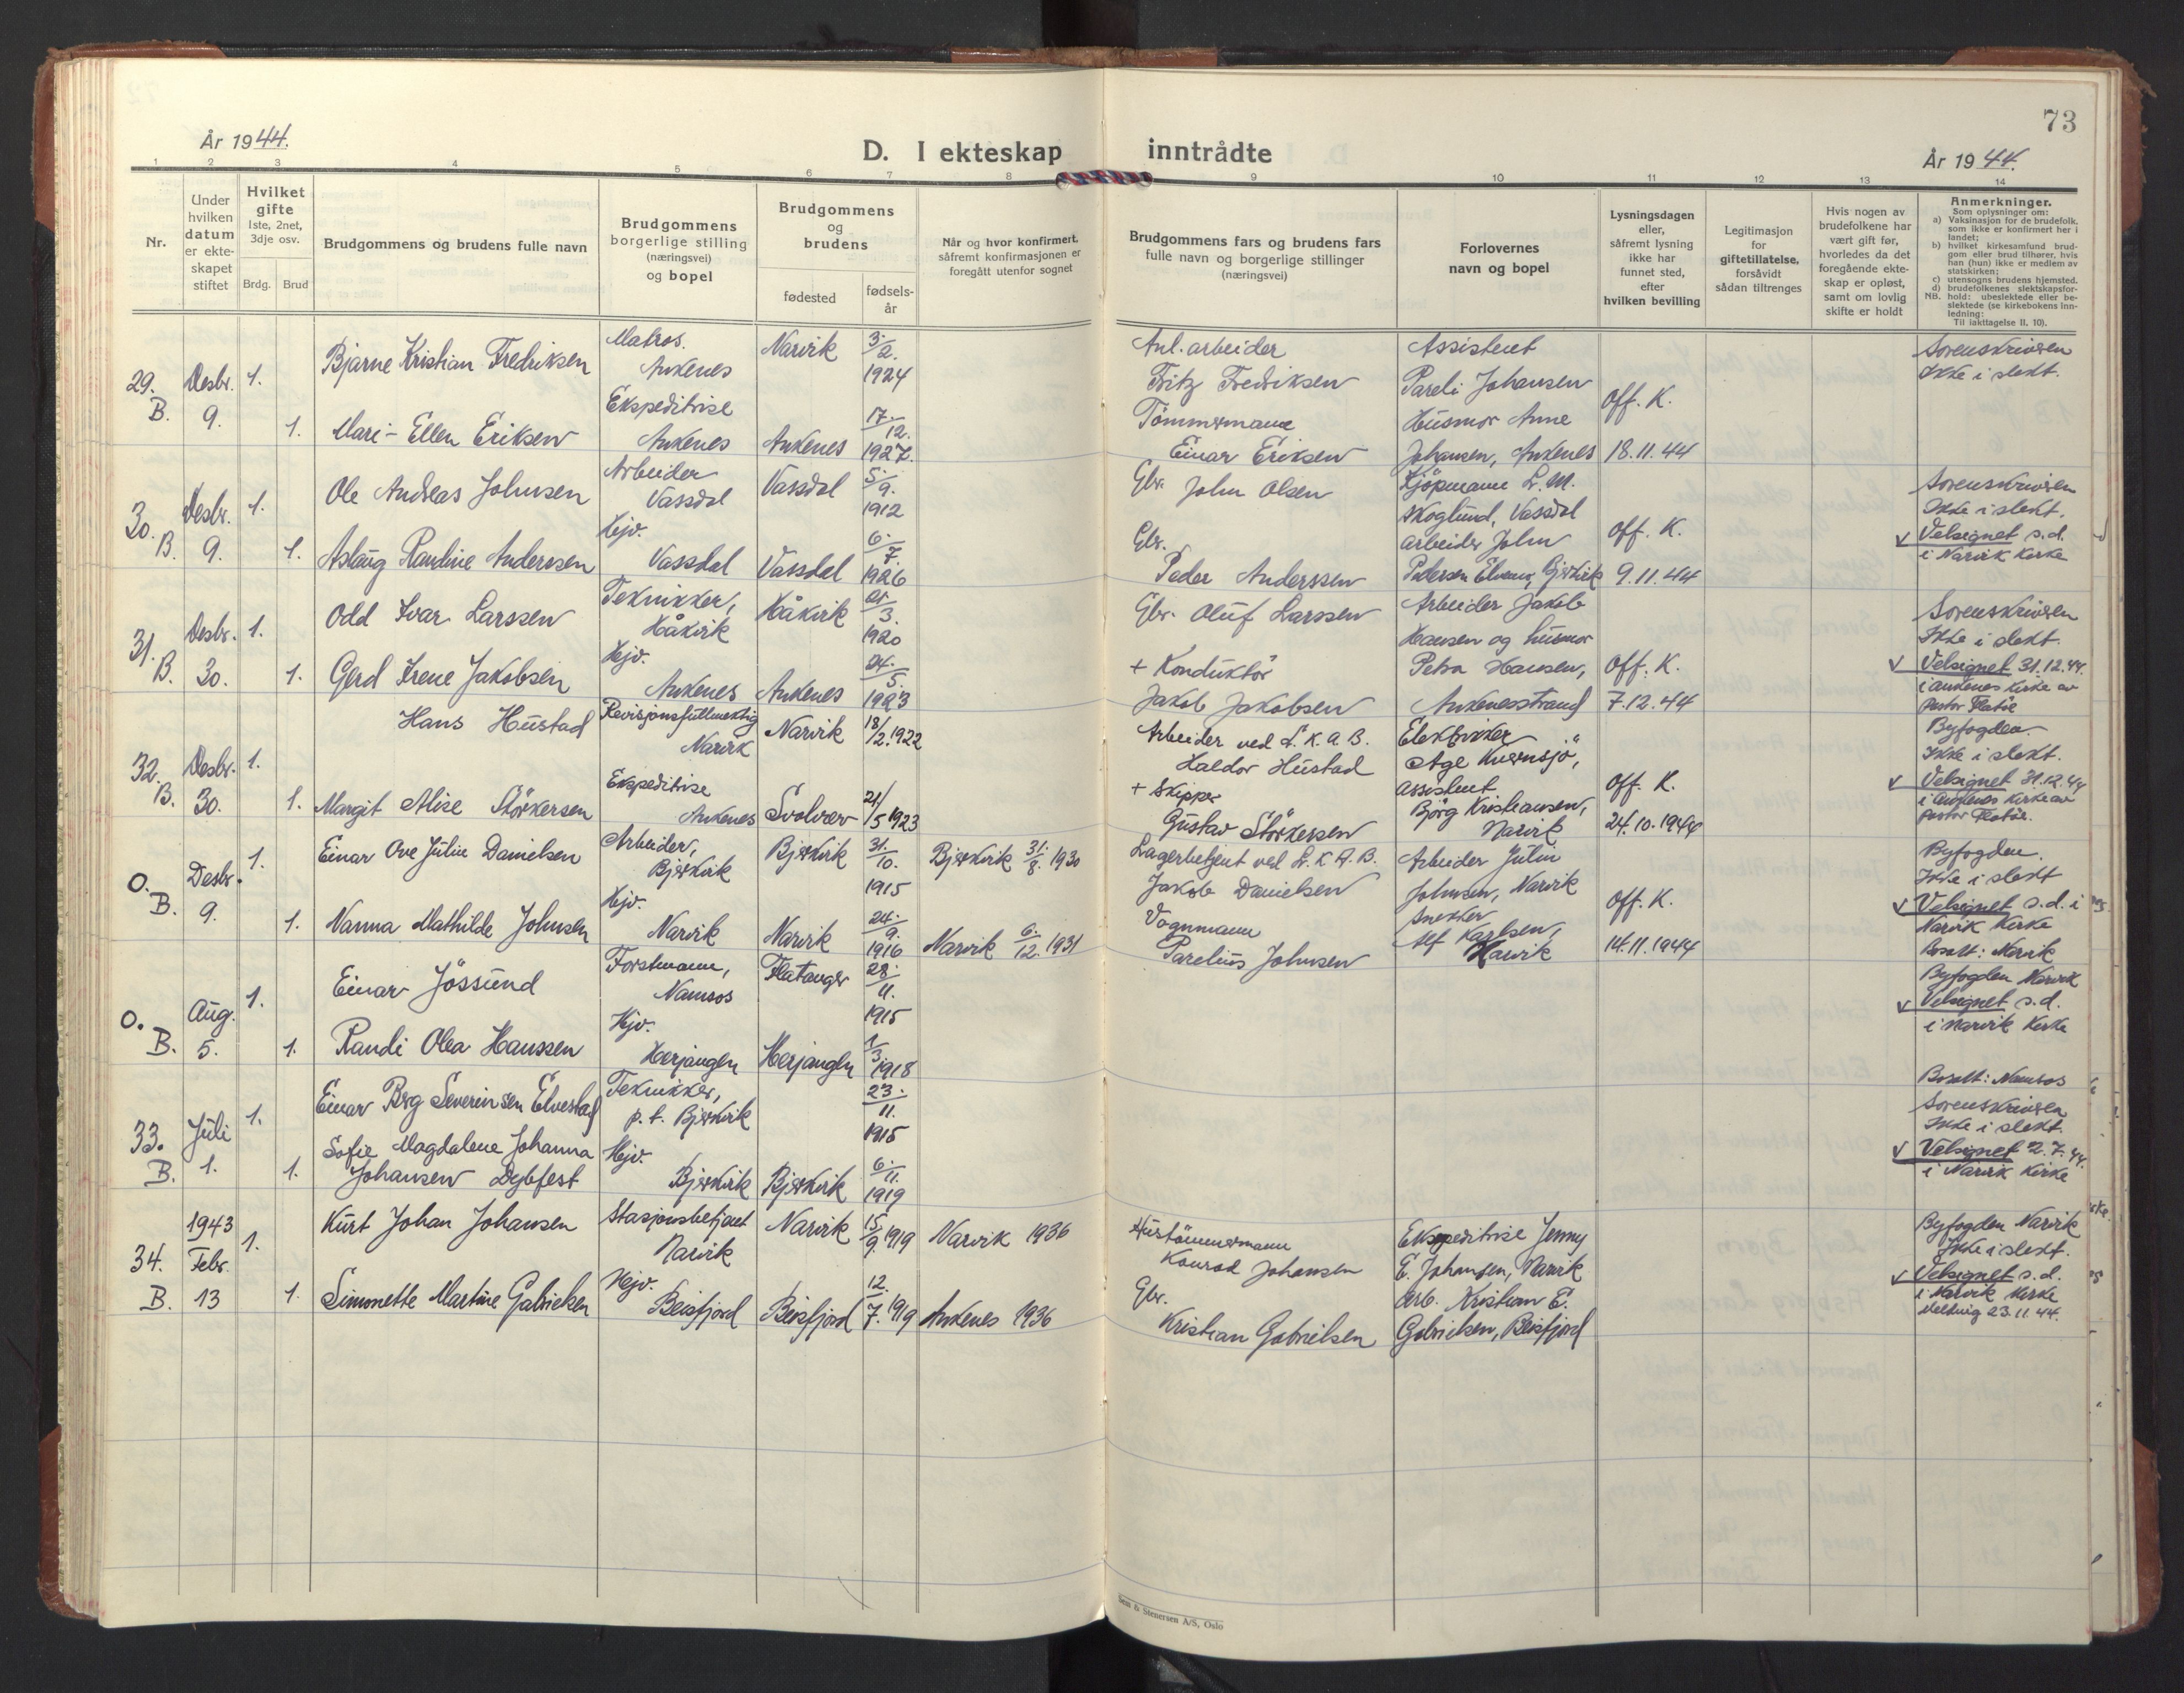 73
År 1944.
D. I ekteskap inntrådte
År 1944.
1 2 3 4 5 6 7 8 9 10 11 12 13 14
Nr.
Under hvilken datum er ekteskapet stiftet
Hvilket gifte
1ste, 2net, 3dje osv.
Brdg. Brud
Brudgommens og brudens fulle navn
Brudgommens borgerlige stilling (næringsvei) og bopel
Brudgommens og brudens
fødested
fødselsår
Når og hvor konfirmert, såfremt konfirmasjonen er foregått utenfor sognet
Brudgommens fars og brudens fars fulle navn og borgerlige stillinger (næringsvei)
Forlovernes navn og bopel
Lysningsdagen eller, såfremt lysning ikke har funnet sted, efter hvilken bevilling
Legitimasjon for giftetillatelse, forsåvidt sådan tiltrenges
Hvis nogen av brudefolkene har vært gift før, hvorledes da det foregående ekteskap er opløst, samt om lovlig skifte er holdt
Anmerkninger.
Som oplysninger om:
a) Vaksinasjon for de brudefolk, som ikke er konfirmert her i landet;
b) hvilket kirkesamfund brudgom eller brud tilhører, hvis han (hun) ikke er medlem av statskirken;
c) utensogns brudens hjemsted.
d) brudefolkenes slektskapsforhold: ubeslektede eller beslektede (se kirkebokens innledning:
NB.
Til iakttagelse II. 10).
29. B. Desbr. 9. 1.
Bjarne Kristian Fredriksen
Matros. Ankenes
Narvik
3/2. 1924
Anl. arbeider
Fritz Fredriksen
Assistent
Pareli Johansen
Sorenskriveren
Ikke i slekt.
1. Mari-Ellen Eriksen
Ekspeditrise
Ankenes
Ankenes
17/12. 1927.
Tömmermann
Einar Eriksen
Husmor Anne
Johansen, Ankenes
Off. K.
18.11.44
30. B. Desbr. 9. 1.
Ole Andreas Johnsen
Arbeider
Vassdal
Vassdal
5/9. 1912
Gbr. John Olsen
Kjöpmann L. M.
Skoglund, Vassdal
Sorenskriveren
Ikke i slekt.
1. Aslaug Randine Anderssen
Hjv.
Vassdal
Vassdal
6/7. 1926
Gbr.
Peder Anderssen
arbeider John
Pedersen Elvenes, Bjerkvik
Off. K.
9.11.44
v Velsignet s.d.
i Narvik Kirke
31. B. Desbr. 30. 1.
Odd Ivar Larssen
Tekniker,
Håkvik
Håkvik
21/3. 1920
Gbr. Oluf Larssen
Arbeider Jakob
Hansen og husmor
Sorenskriveren
Ikke i slekt.
1. Gerd Irene Jakobsen
Hjv.
Ankenes
Ankenes
24/5. 1923
+ Konduktör
Jakob Jakobsen
Petra Hansen,
Ankenesstrand
Off. K.
7.12.44
v Velsignet 31.12.44.
i Ankenes Kirke av
pastor Flatöe
32. B. Desbr. 30. 1.
Hans Hustad
Revisjonsfullmektig
Narvik
Narvik
18/2. 1922
Arbeider ved L.K.A.B.
Haldor Hustad
Elektriker
Åge Kvernsjö,
Byfogden
Ikke i slekt.
1. Margit Alise Störkersen
Ekspeditrise
Ankenes
Svolvær
21/5 1923
+ Skipper
Gustav Störkersen
assistent
Björg Kristiansen,
Narvik
Off. K.
24.10.1944
v Velsignet 31.12.44
i Ankenes Kirke av
pastor Flatöe.
0. B. Desbr. 9. 1.
Einar Ove Julin Danielsen
Arbeider,
Bjerkvik
Bjerkvik
31/10. 1915
Bjerkvik 31/8. 1930
Lagerbetjent ved L.K.A.B.
Jakob Danielsen
Arbeider Julin
Johnsen, Narvik
Byfogden.
Ikke i slekt
1. Nanna Mathilde Johnsen
Hjv.
Narvik
Narvik
24/9. 1916
Narvik 6/12. 1931
Vognmann
Parelius Johnsen
Snekker
Alf Karlsen,
Narvik
Off. K.
14.11.1944
v Velsignet s.d. i
Narvik Kirke
Bosatt: Narvik
0. B. Aug. 5. 1.
Einar Jössund
Forstmann,
Namsos
Flatanger
28/11. 1915
Byfogden Narvik
v Velsignet s.d.
i Narvik Kirke
1. Randi Olea Hanssen
Hjv.
Herjangen
Herjangen
1/3 1918
Bosatt: Namsos
33. B. Juli 1. 1.
Einar Berg Severinsen Elvestad
Tekniker,
p.t. Bjerkvik
23/11. 1915
Sorenskriveren
Ikke i slekt.
1. Sofie Magdalene Johanna
Johansen Dybfest
Hjv.
Bjerkvik
Bjerkvik
6/11. 1919
v Velsignet 2.7.44.
i Narvik Kirke
34. B. 1943 Febr. 13 1.
Kurt Johan Johansen
Stasjonsbetjent
Narvik
Narvik
15/9. 1919
Narvik 1936
Hustömmermann
Konrad Johansen
Ekspeditrise Jenny
E. Johansen, Narvik
Byfogden Narvik
Ikke i slekt.
1. Simonette Martine Gabrielsen
Hjv.
Beisfjord
Beisfjord
12/7. 1919
Ankenes 1936
Gbr.
Kristian Gabrielsen
Arb. Kristian E.
Gabrielsen, Beisfjord
v Velsignet s.d.
i Narvik Kirke
Melding 23.11.44.
Sem & Stenersen A/S, Oslo